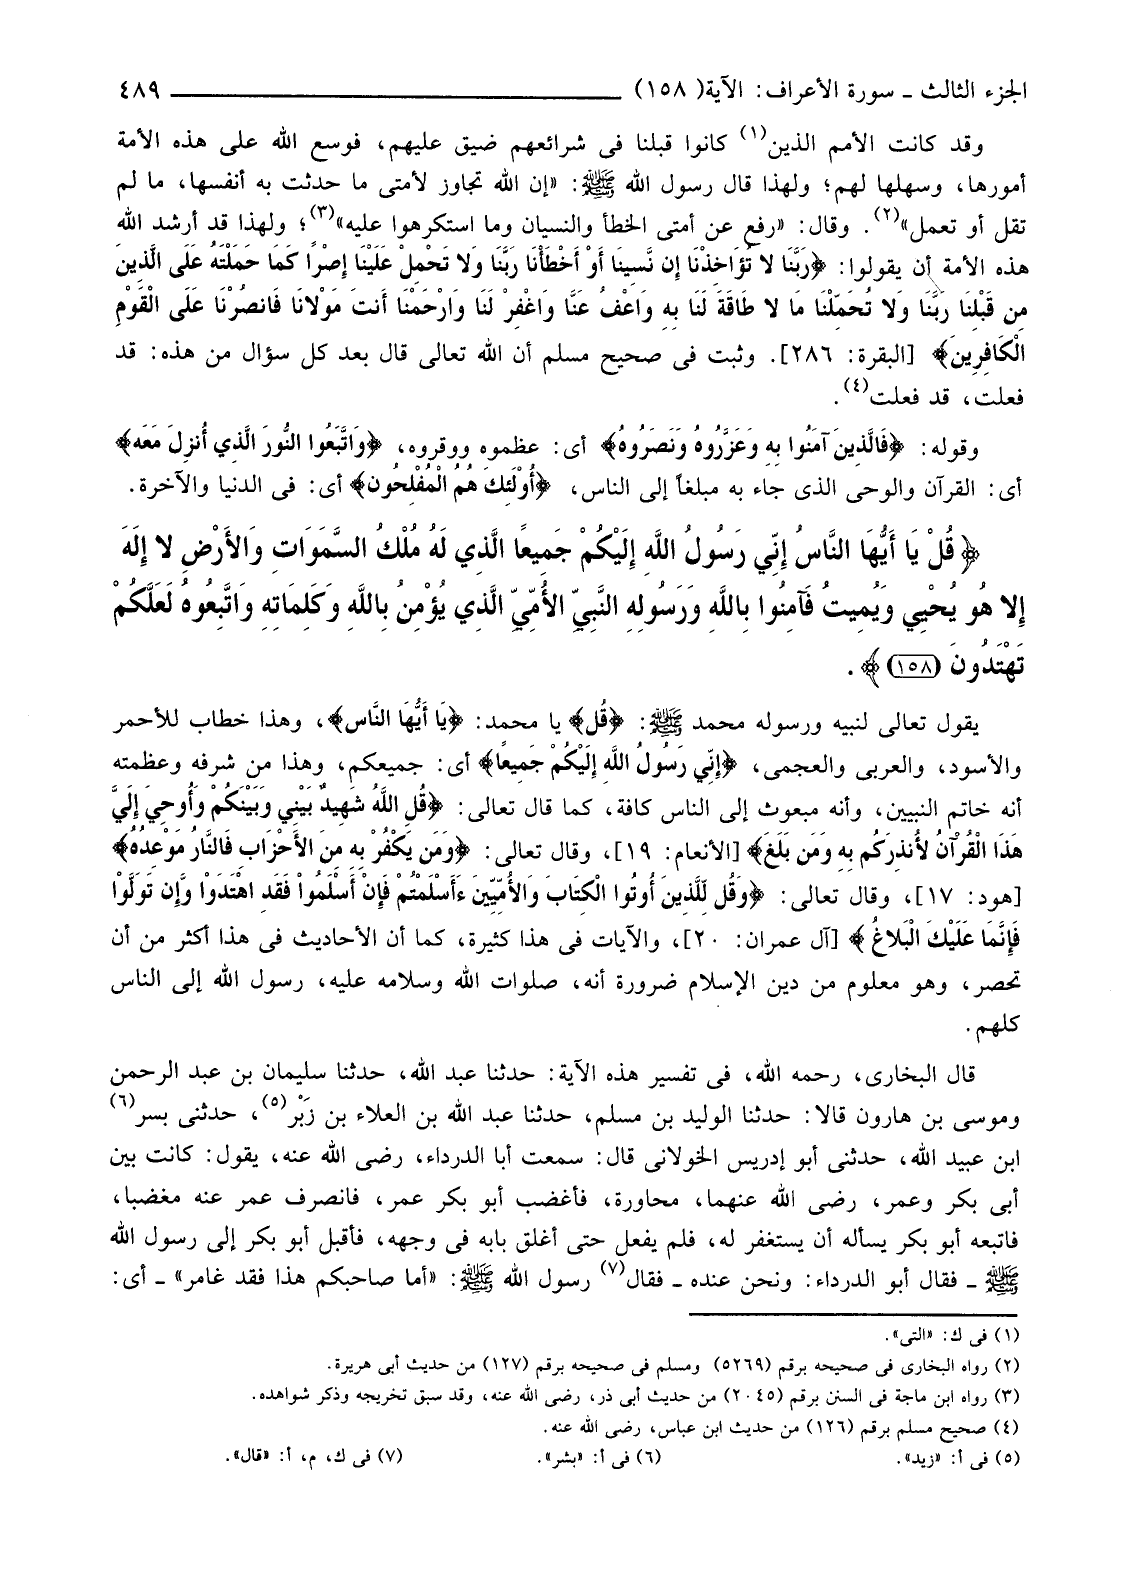 الجزء الثالث ـ سورة الأعراف: الآية( ١٥٨) ٤٨٩
وقد كانت الأمم الذين(١) كانوا قبلنا فى شرائعهم ضيق عليهم، فوسع الله على هذه الأمة
أمورها، وسهلها لهم؛ ولهذا قال رسول الله ﷺ: «إن الله تجاوز لأمتى ما حدثت به أنفسها، ما لم
تقل أو تعمل»(٢). وقال: «رفع عن أمتى الخطأ والنسيان وما استكرهوا عليه»(٣)؛ ولهذا قد أرشد الله
هذه الأمة أن يقولوا: ﴿رَبَّنَا لا تُؤَاخِذْنَا إِن نَّسِينَا أَوْ أَخْطَأْنَا رَبَّنَا وَلا تَحْمِلْ عَلَيْنَا إِصْرًا كَمَا حَمَلْتَهُ عَلَى الَّذِينَ
مِن قَبْلِنَا رَبَّنَا وَلا تُحَمِّلْنَا مَا لا طَاقَةَ لَنَا بِهِ وَاعْفُ عَنَّا وَاغْفِرْ لَنَا وَارْحَمْنَا أَنتَ مَوْلانَا فَانصُرْنَا عَلَى الْقَوْمِ
الْكَافِرِينَ﴾ [البقرة: ٢٨٦]. وثبت فى صحيح مسلم أن الله تعالى قال بعد كل سؤال من هذه: قد
فعلت، قد فعلت(٤).
وقوله: ﴿فَالَّذِينَ آمَنُوا بِهِ وَعَزَّرُوهُ وَنَصَرُوهُ﴾ أى: عظموه ووقروه، ﴿وَاتَّبَعُوا النُّورَ الَّذِي أُنزِلَ مَعَه﴾
أى: القرآن والوحى الذى جاء به مبلغاً إلى الناس، ﴿أُوْلَئِكَ هُمُ الْمُفْلِحُون﴾ أى: فى الدنيا والآخرة.
﴿قُلْ يَا أَيُّهَا النَّاسُ إِنِّي رَسُولُ اللَّهِ إِلَيْكُمْ جَمِيعًا الَّذِي لَهُ مُلْكُ السَّمَوَاتِ وَالأَرْضِ لا إِلَهَ
إِلا هُوَ يُحْيِي وَيُمِيتُ فَآمِنُوا بِاللَّهِ وَرَسُولِهِ النَّبِيِّ الأُمِّيِّ الَّذِي يُؤْمِنُ بِاللَّهِ وَكَلِمَاتِهِ وَاتَّبِعُوهُ لَعَلَّكُمْ
تَهْتَدُونَ (١٥٨)﴾.
يقول تعالى لنبيه ورسوله محمد ﷺ: ﴿قُل﴾ يا محمد: ﴿يَا أَيُّهَا النَّاس﴾، وهذا خطاب للأحمر
والأسود، والعربى والعجمى، ﴿إِنِّي رَسُولُ اللَّهِ إِلَيْكُمْ جَمِيعًا﴾ أى: جميعكم، وهذا من شرفه وعظمته
أنه خاتم النبيين، وأنه مبعوث إلى الناس كافة، كما قال تعالى: ﴿قُلِ اللَّهُ شَهِيدٌ بَيْنِي وَبَيْنَكُمْ وَأُوحِيَ إِلَيَّ
هَذَا الْقُرْآنُ لأُنذِرَكُم بِهِ وَمَن بَلَغَ﴾ [الأنعام: ١٩]، وقال تعالى: ﴿وَمَن يَكْفُرْ بِهِ مِنَ الأَحْزَابِ فَالنَّارُ مَوْعِدُهُ﴾
[هود: ١٧]، وقال تعالى: ﴿وَقُل لِّلَّذِينَ أُوتُوا الْكِتَابَ وَالأُمِّيِّينَ ءَأَسْلَمْتُمْ فَإِنْ أَسْلَمُوا فَقَدِ اهْتَدَوْا وَّإِن تَوَلَّوْا
فَإِنَّمَا عَلَيْكَ الْبَلاغُ﴾ [آل عمران: ٢٠]، والآيات فى هذا كثيرة، كما أن الأحاديث فى هذا أكثر من أن
تحصر، وهو معلوم من دين الإسلام ضرورة أنه، صلوات الله وسلامه عليه، رسول الله إلى الناس
كلهم.
قال البخارى، رحمه الله، فى تفسير هذه الآية: حدثنا عبد الله، حدثنا سليمان بن عبد الرحمن
وموسى بن هارون قالا: حدثنا الوليد بن مسلم، حدثنا عبد الله بن العلاء بن زَبْر(٥)، حدثنى بسر(٦)
ابن عبيد الله، حدثنى أبو إدريس الخولانى قال: سمعت أبا الدرداء، رضى الله عنه، يقول: كانت بين
أبى بكر وعمر، رضى الله عنهما، محاورة، فأغضب أبو بكر عمر، فانصرف عمر عنه مغضبا،
فاتبعه أبو بكر يسأله أن يستغفر له، فلم يفعل حتى أغلق بابه فى وجهه، فأقبل أبو بكر إلى رسول الله
ﷺ ـ فقال أبو الدرداء: ونحن عنده ـ فقال(٧) رسول الله ﷺ: «أما صاحبكم هذا فقد غامر» ـ أى:
(١) فى ك: «التى».
(٢) رواه البخارى فى صحيحه برقم (٥٢٦٩) ومسلم فى صحيحه برقم (١٢٧) من حديث أبى هريرة.
(٣) رواه ابن ماجة فى السنن برقم (٢٠٤٥) من حديث أبى ذر، رضى الله عنه، وقد سبق تخريجه وذكر شواهده.
(٤) صحيح مسلم برقم (١٢٦) من حديث ابن عباس، رضى الله عنه.
(٥) فى أ: «زيد». (٦) فى أ: «بشر». (٧) فى ك، م، أ: «قال».